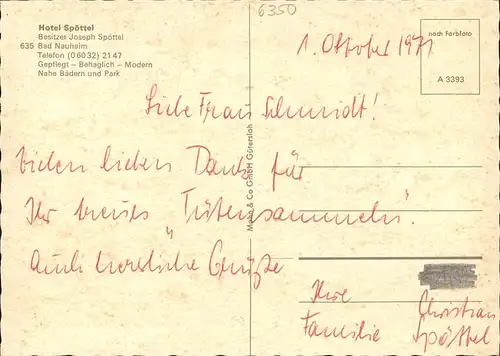 6350
Hotel Spöttel
Besitzer Joseph Spöttel
635 Bad Nauheim
Telefon (0 60 32) 21 47
Gepflegt – Behaglich – Modern
Nahe Bädern und Park
nach Farbfoto
A 3393
Mohn & Co GmbH Gütersloh
1. Oktober 1971
Liebe Frau Schmidt!
vielen lieben Dank für
Ihr treues "Tütensammeln".
Auch herzliche Grüße
Ihre Christian
Familie Spöttel